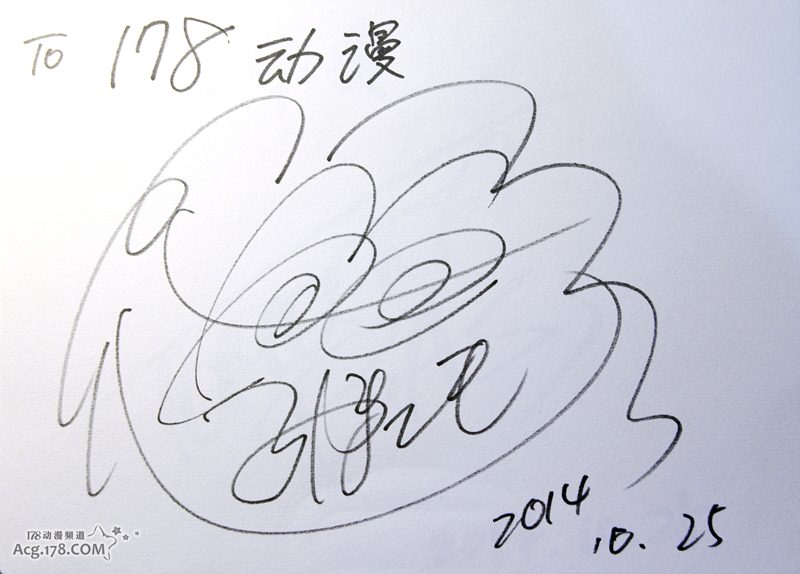 To 178 动漫
2014
10. 25
178动漫频道
Acg.178.COM